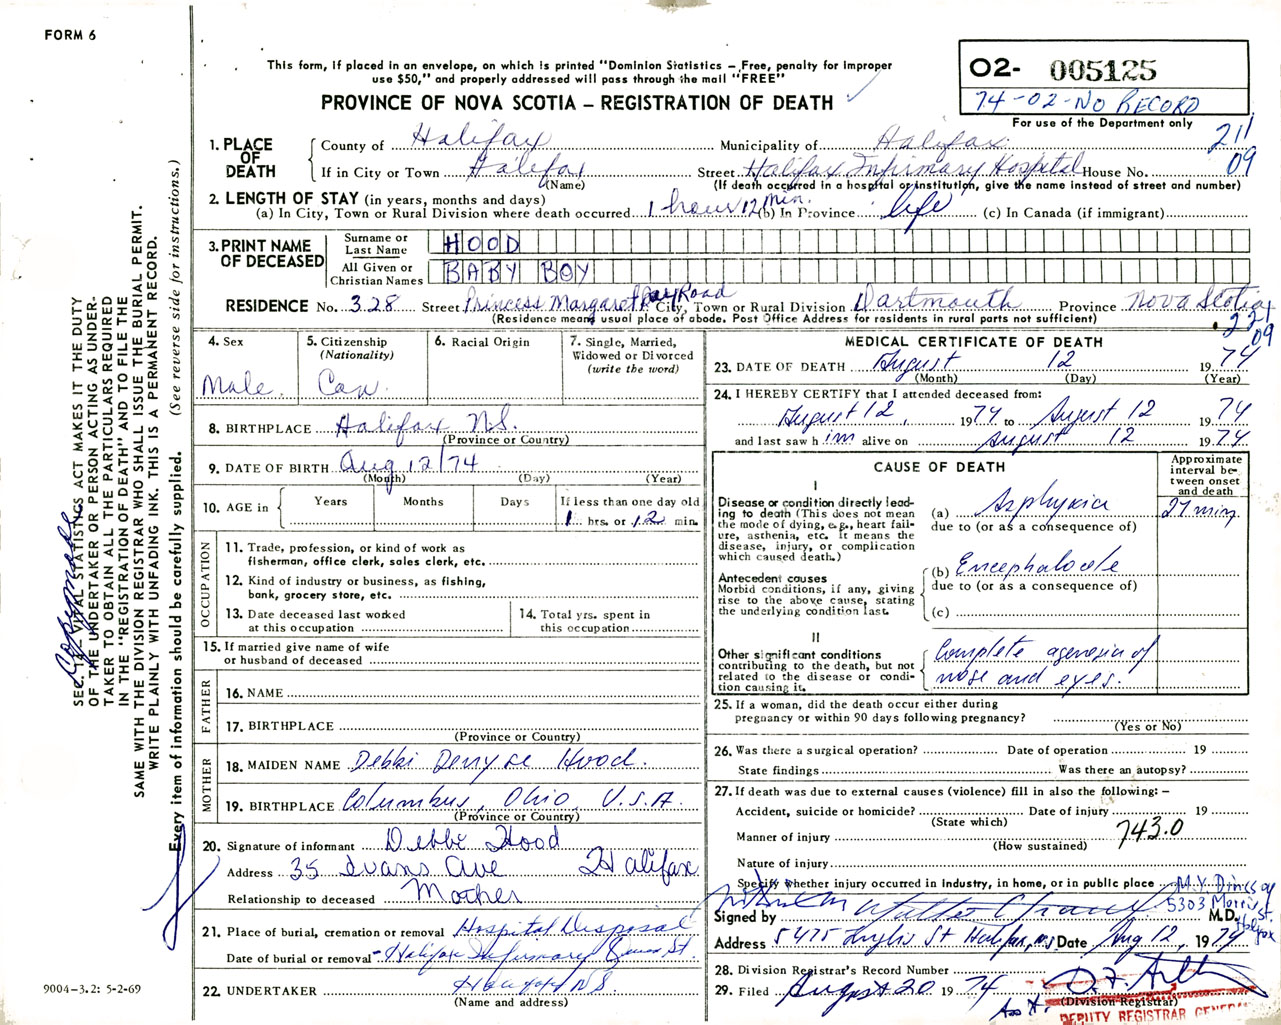 FORM 6
This form, if placed in an envelope, on which is printed "Dominion Statistics – Free, penalty for improper
use $50," and properly addressed will pass through the mail "FREE"
PROVINCE OF NOVA SCOTIA – REGISTRATION OF DEATH
02- 005125
74-02-NO RECORD
For use of the Department only
211
09
1. PLACE OF DEATH
County of Halifax Municipality of Halifax
If in City or Town Halifax Street Halifax Infirmary Hospital House No.
(Name) (If death occurred in a hospital or institution, give the name instead of street and number)
2. LENGTH OF STAY (in years, months and days)
(a) In City, Town or Rural Division where death occurred 1 hour 12 min. (b) In Province life (c) In Canada (if immigrant)
3. PRINT NAME OF DECEASED
Surname or Last Name HOOD
All Given or Christian Names BABY BOY
RESIDENCE No. 328 Street Princess Margaret Road City, Town or Rural Division Dartmouth Province Nova Scotia
(Residence means usual place of abode. Post Office Address for residents in rural parts not sufficient)
221
09
4. Sex
Male
5. Citizenship
(Nationality)
Can
6. Racial Origin
7. Single, Married,
Widowed or Divorced
(write the word)
8. BIRTHPLACE Halifax N.S.
(Province or Country)
9. DATE OF BIRTH Aug 12/74
(Month) (Day) (Year)
10. AGE in Years Months Days If less than one day old
1 hrs. or 12 min.
OCCUPATION
11. Trade, profession, or kind of work as
fisherman, office clerk, sales clerk, etc.
12. Kind of industry or business, as fishing,
bank, grocery store, etc.
13. Date deceased last worked
at this occupation
14. Total yrs. spent in
this occupation
15. If married give name of wife
or husband of deceased
FATHER
16. NAME
17. BIRTHPLACE
(Province or Country)
MOTHER
18. MAIDEN NAME Debbi Hood.
19. BIRTHPLACE Columbus, Ohio, U.S.A.
(Province or Country)
20. Signature of informant Debbi Hood
Address 35 Evans Ave Halifax
Relationship to deceased Mother
21. Place of burial, cremation or removal Hospital Disposal
Date of burial or removal - Halifax Infirmary Queen St.
22. UNDERTAKER Halifax N.S.
(Name and address)
MEDICAL CERTIFICATE OF DEATH
23. DATE OF DEATH August 12 1974
(Month) (Day) (Year)
24. I HEREBY CERTIFY that I attended deceased from:
August 12, 1974 to August 12 1974
and last saw him alive on August 12 1974
CAUSE OF DEATH
Approximate
interval be-
tween onset
and death
I
Disease or condition directly lead-
ing to death (This does not mean
the mode of dying, e.g., heart fail-
ure, asthenia, etc. It means the
disease, injury, or complication
which caused death.)
(a) Asphyxia 27 min.
due to (or as a consequence of)
Antecedent causes
Morbid conditions, if any, giving
rise to the above cause, stating
the underlying condition last.
(b) Encephalocele
due to (or as a consequence of)
(c)
II
Other significant conditions
contributing to the death, but not
related to the disease or condi-
tion causing it.
Complete agenesia of
nose and eyes.
25. If a woman, did the death occur either during
pregnancy or within 90 days following pregnancy?
(Yes or No)
26. Was there a surgical operation? Date of operation 19
State findings Was there an autopsy?
27. If death was due to external causes (violence) fill in also the following: –
Accident, suicide or homicide? Date of injury 19
(State which)
743.0
Manner of injury
(How sustained)
Nature of injury
Specify whether injury occurred in Industry, in home, or in public place
5303 Morris St.
Halifax
Signed by M.D.
Address 5475 St Halifax, NS Date Aug 12, 1974
28. Division Registrar's Record Number
29. Filed August 20 1974
(Division Registrar)
DEPUTY REGISTRAR GENERAL
SEC. 14 – VITAL STATISTICS ACT MAKES IT THE DUTY
OF THE UNDERTAKER OR PERSON ACTING AS UNDER-
TAKER TO OBTAIN ALL THE PARTICULARS REQUIRED
IN THE "REGISTRATION OF DEATH" AND TO FILE THE
SAME WITH THE DIVISION REGISTRAR WHO SHALL ISSUE THE BURIAL PERMIT.
WRITE PLAINLY WITH UNFADING INK. THIS IS A PERMANENT RECORD.
Every item of information should be carefully supplied. (See reverse side for instructions.)
9004-3.2: 5-2-69